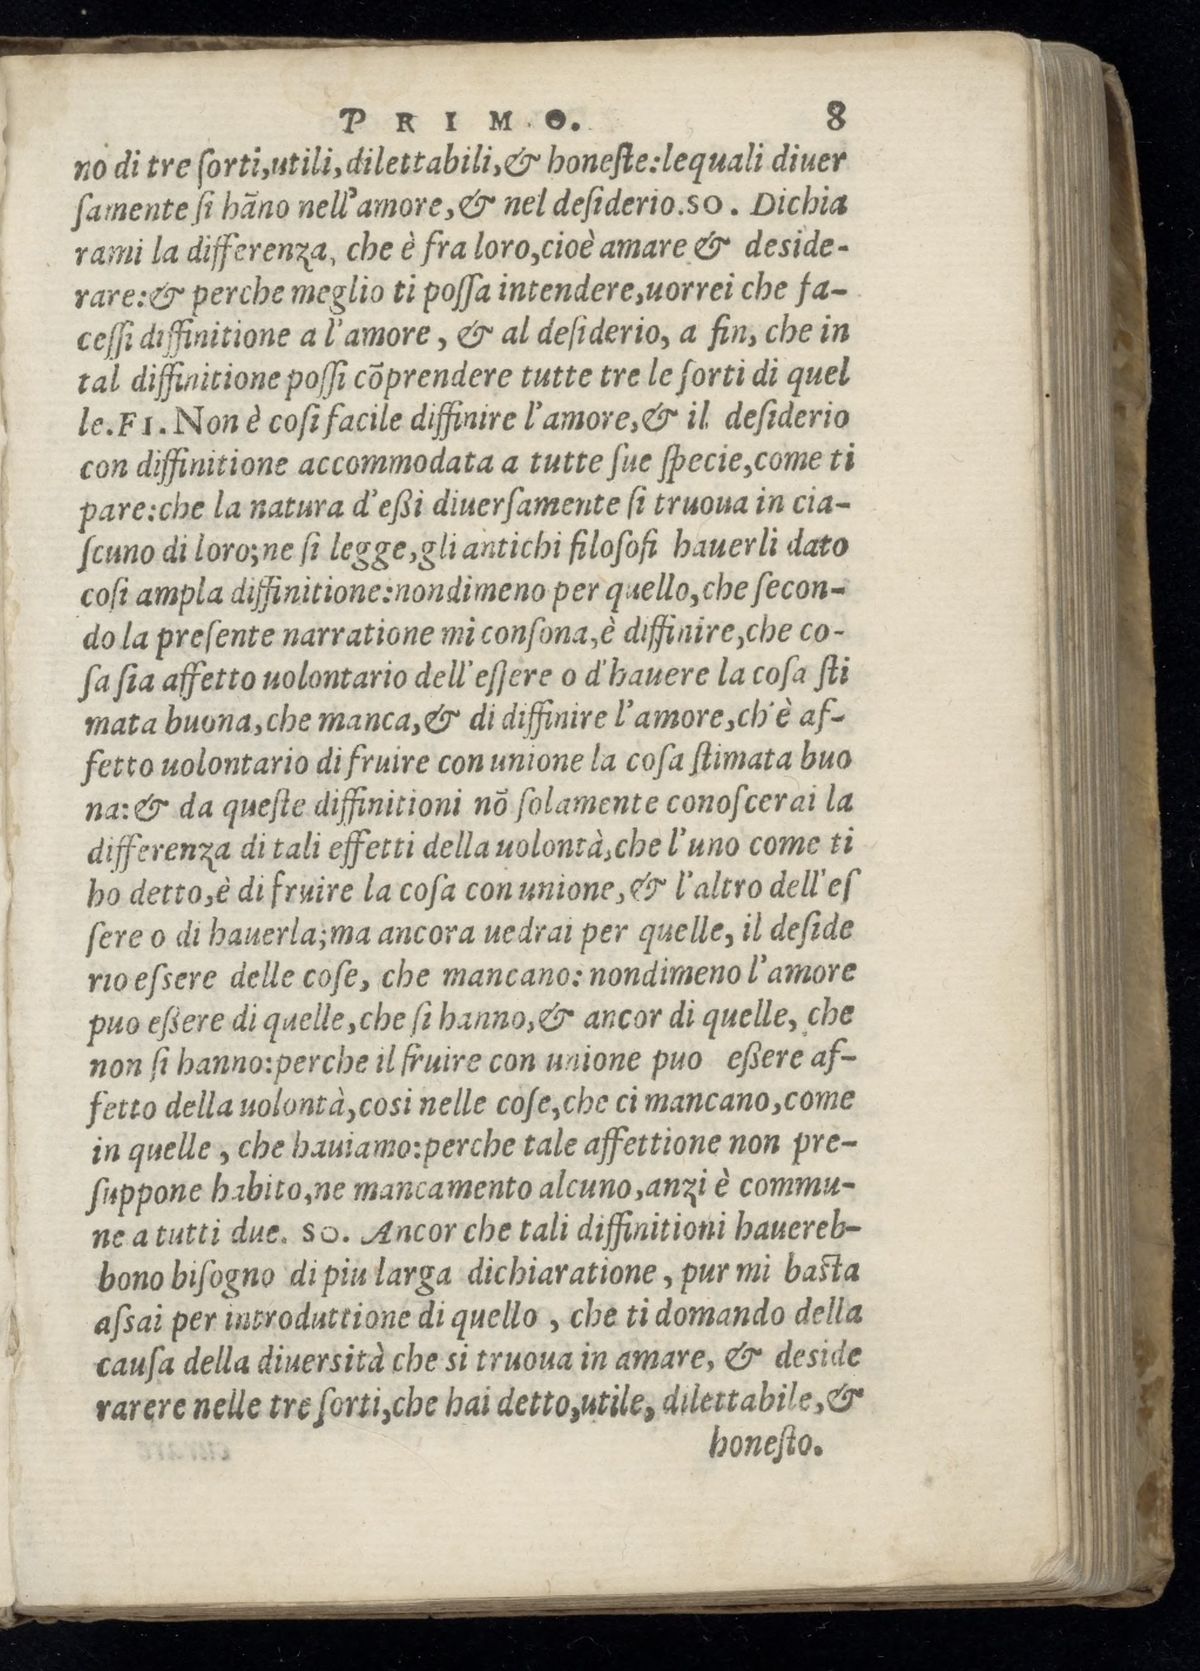 PRIMO. 8
no di tre ſorti,utili,dilettabili,& honeſte:lequali diuer
ſamente ſi hãno nell'amore,& nel deſiderio.SO. Dichia
rami la differenza, che è fra loro,cioè amare & deside-
rare:& perche meglio ti poſſa intendere,uorrei che fa-
ceſſi diffinitione a l'amore, & al deſiderio, a fin, che in
tal diffinitione poſſi cõprendere tutte tre le ſorti di quel
le.FI.Non è coſi facile diffinire l'amore,& il deſiderio
con diffinitione accommodata a tutte ſue ſpecie,come ti
pare:che la natura d'eßi diuerſamente ſi truoua in cia-
ſcuno di loro;ne ſi legge,gli antichi filoſofi hauerli dato
coſi ampla diffinitione:nondimeno per quello,che ſecon-
do la preſente narratione mi conſona,è diffinire,che co-
ſa ſia affetto uolontario dell'eſſere o d'hauere la coſa ſti
mata buona,che manca,& di diffinire l'amore,ch'è af-
fetto uolontario di fruire con unione la coſa ſtimata buo
na:& da queſte diffinitioni nõ ſolamente conoſcerai la
differenza di tali effetti della uolontà,che l'uno come ti
ho detto,è di fruire la coſa con unione,& l'altro dell'eſ
ſere o di hauerla;ma ancora uedrai per quelle, il deſide
rio eſsere delle coſe, che mancano: nondimeno l'amore
puo eßere di quelle,che ſi hanno,& ancor di quelle, che
non ſi hanno:perche il fruire con unione puo eßere af-
fetto della uolontà,cosi nelle coſe,che ci mancano,come
in quelle, che hauiamo:perche tale affettione non pre-
ſuppone habito,ne mancamento alcuno,anzi è commu-
ne a tutti due. SO. Ancor che tali diffinitioni hauereb-
bono biſogno di piu larga dichiaratione, pur mi basta
aſsai per introduttione di quello, che ti domando della
cauſa della diuersità che si truoua in amare, & deside
rarere nelle tre ſorti,che hai detto,utile, dilettabile,&
honeſto.